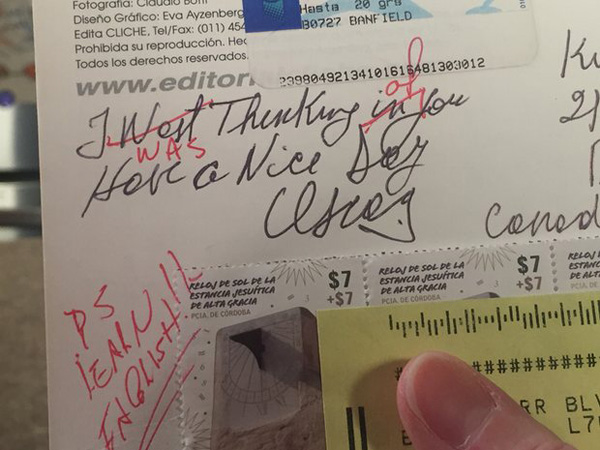 Fotografía: Claudio
Diseño Gráfico: Eva Ayzenberg
Edita CLICHE, Tel/Fax: (011) 454
Prohibida su reproducción. Hec
Todos los derechos reservados.
www.editor
Hasta 20 grs
B0727 BANFIELD
I West Thenking in you
WAS
of
Have a Nice Day
Oscar
2/
Canad
PS
LEARN
ENGLISH!!
RELOJ DE SOL DE LA
ESTANCIA JESUÍTICA
DE ALTA GRACIA
PCIA. DE CÓRDOBA
$7
+$7
RELOJ DE SOL DE LA
ESTANCIA JESUÍTICA
DE ALTA GRACIA
PCIA. DE CÓRDOBA
$7
+$7
RELOJ DE
ESTANCIA
DE ALTA
PCIA. DE C
##############
RR BLV
L7